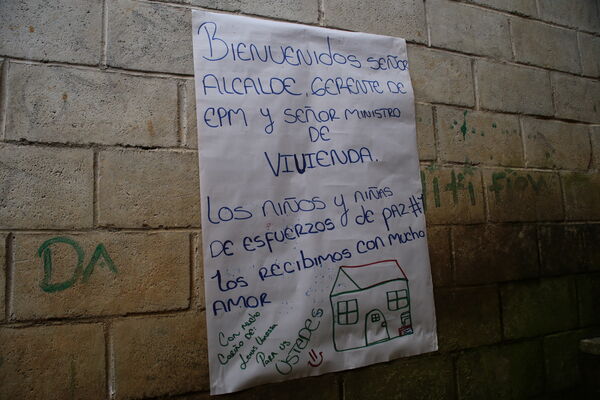 BIENVENIDOS SEÑOR
ALCALDE, GERENTE DE
EPM Y SEÑOR MINISTRO
DE
VIVIENDA.
LOS NIÑOS Y NIÑAS
DE ESFUERZOS DE PAZ #1
LOS RECIBIMOS CON MUCHO
AMOR
CON MUCHO
CARIÑO DE:
PARA US
USTEDES
DA